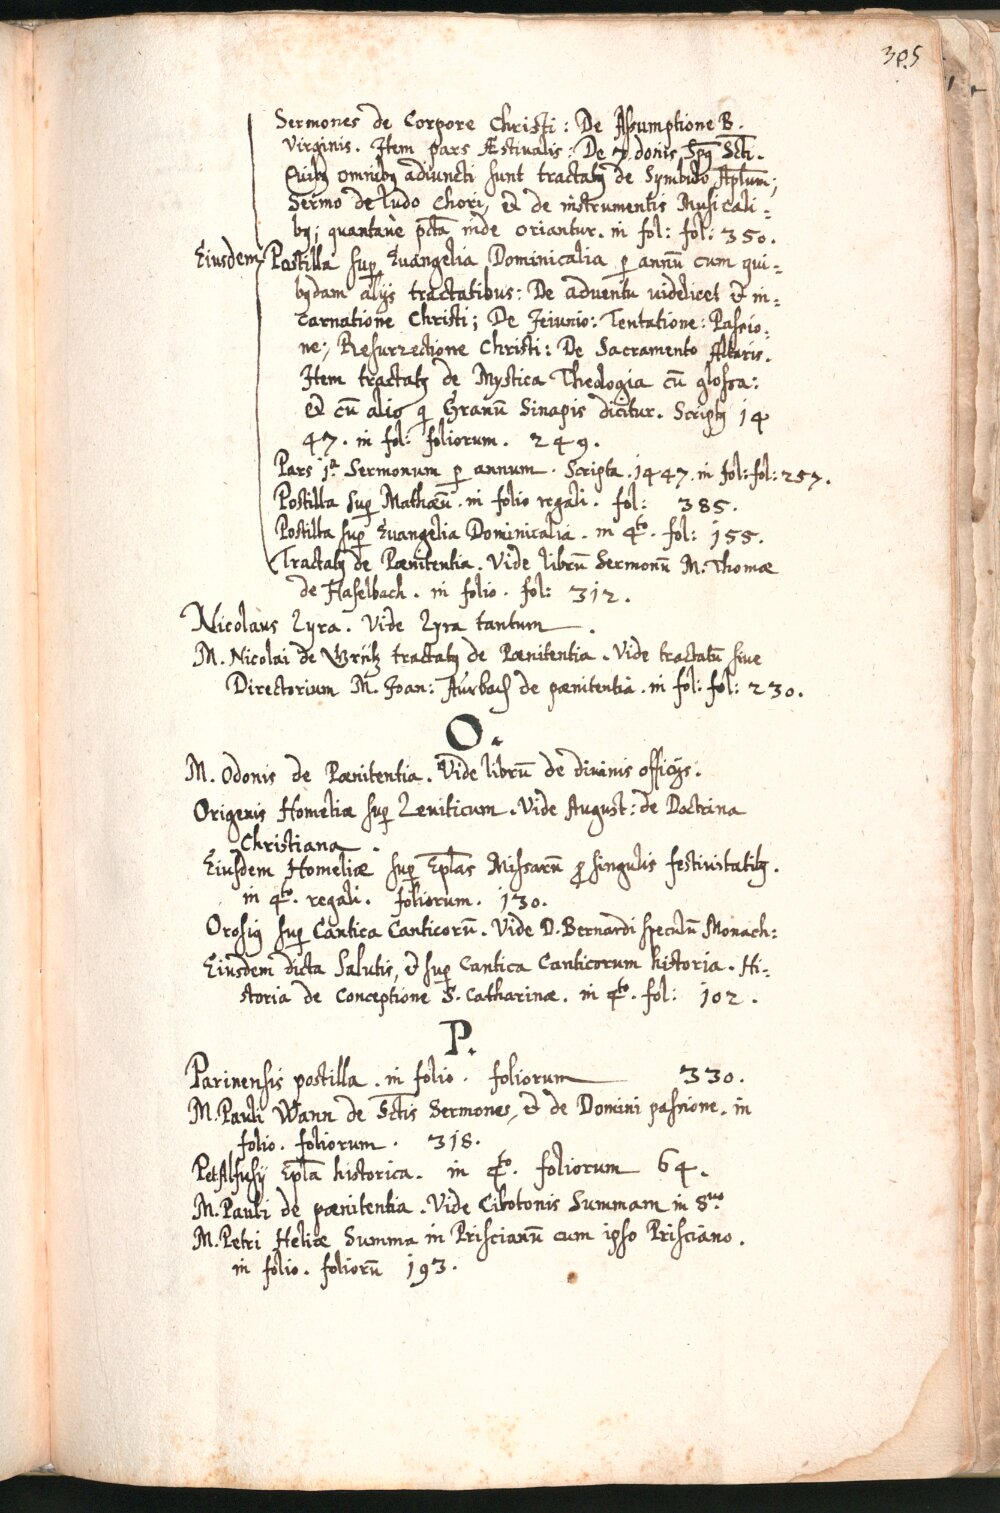 305
Sermones de Corpore Christi: De Assumptione B.
Virginis. Item pars Æstivalis: De 7. donis Spũ Scti.
Quibꝫ omnibꝫ adiuncti sunt tractatꝫ de Symbolo Aplũm;
Sermo de Ludo Chori, et de instrumentis Musicali-
bꝫ; pctã inde oriantur. in fol: fol: 350.
Eiusdem Postilla sup Euangelia Dominicalia p annũ cum qui-
bꝫdam alijs tractatibus: De adventu videlicet et in-
carnatione Christi; De Jeiunio: Tentatione: Passio-
ne; Resurrectione Christi: De Sacramento Altaris.
Item tractatꝫ de Mystica Theologia cũ glossa:
et cũ alio q Granũ Sinapis dicitur. Scriptꝫ 14
47. in fol: foliorum. 249.
Pars 1ª Sermonum p annum. Scripta. 1447. in fol: fol: 257.
Postilla sup Mathæũ. in folio regali. fol: 385.
Postilla sup Euangelia Dominicalia. in 4to. fol: 155.
Tractatꝫ de Pœnitentia. Vide librũ Sermonũ M. Thomæ
de Haselbach. in folio. fol: 312.
Nicolaus Lyra. Vide Lyra tantum.
M. Nicolai de tractatꝫ de Pœnitentia. Vide tractatũ siue
Directorium M. Joan: Aúrbach de pœnitentia. in fol: fol: 230.
O.
M. Odonis de Pœnitentia. Vide librũ de divinis officijs.
Origenis Homeliæ sup Leviticum. Vide August: de Doctrina
Christiana.
Eiusdem Homeliæ sup Eplas Missarũ p singulis festivitatibꝫ.
in 4to. regali. foliorum. 130.
Orosiꝫ sup Cantica Canticorũ. Vide D. Bernardi speculũ Monach:
Eiusdem dicta Salutis, et sup Cantica Canticorum historia. Hi-
storia de Conceptione S. Catharinæ. in 4to. fol: 102.
P.
Parinensis postilla. in folio. foliorum 330.
M. Pauli Wann de Sctis Sermones, et de Domini passione. in
folio. foliorum. 318.
Pet Alfusij Epla historica. in 4to. foliorum 64.
M. Pauli de pœnitentia. Vide Cibotonis Summam in 8uo
M. Petri Heliæ Summa in Priscianũ cum ipso Prisciano.
in folio. foliorũ 193.